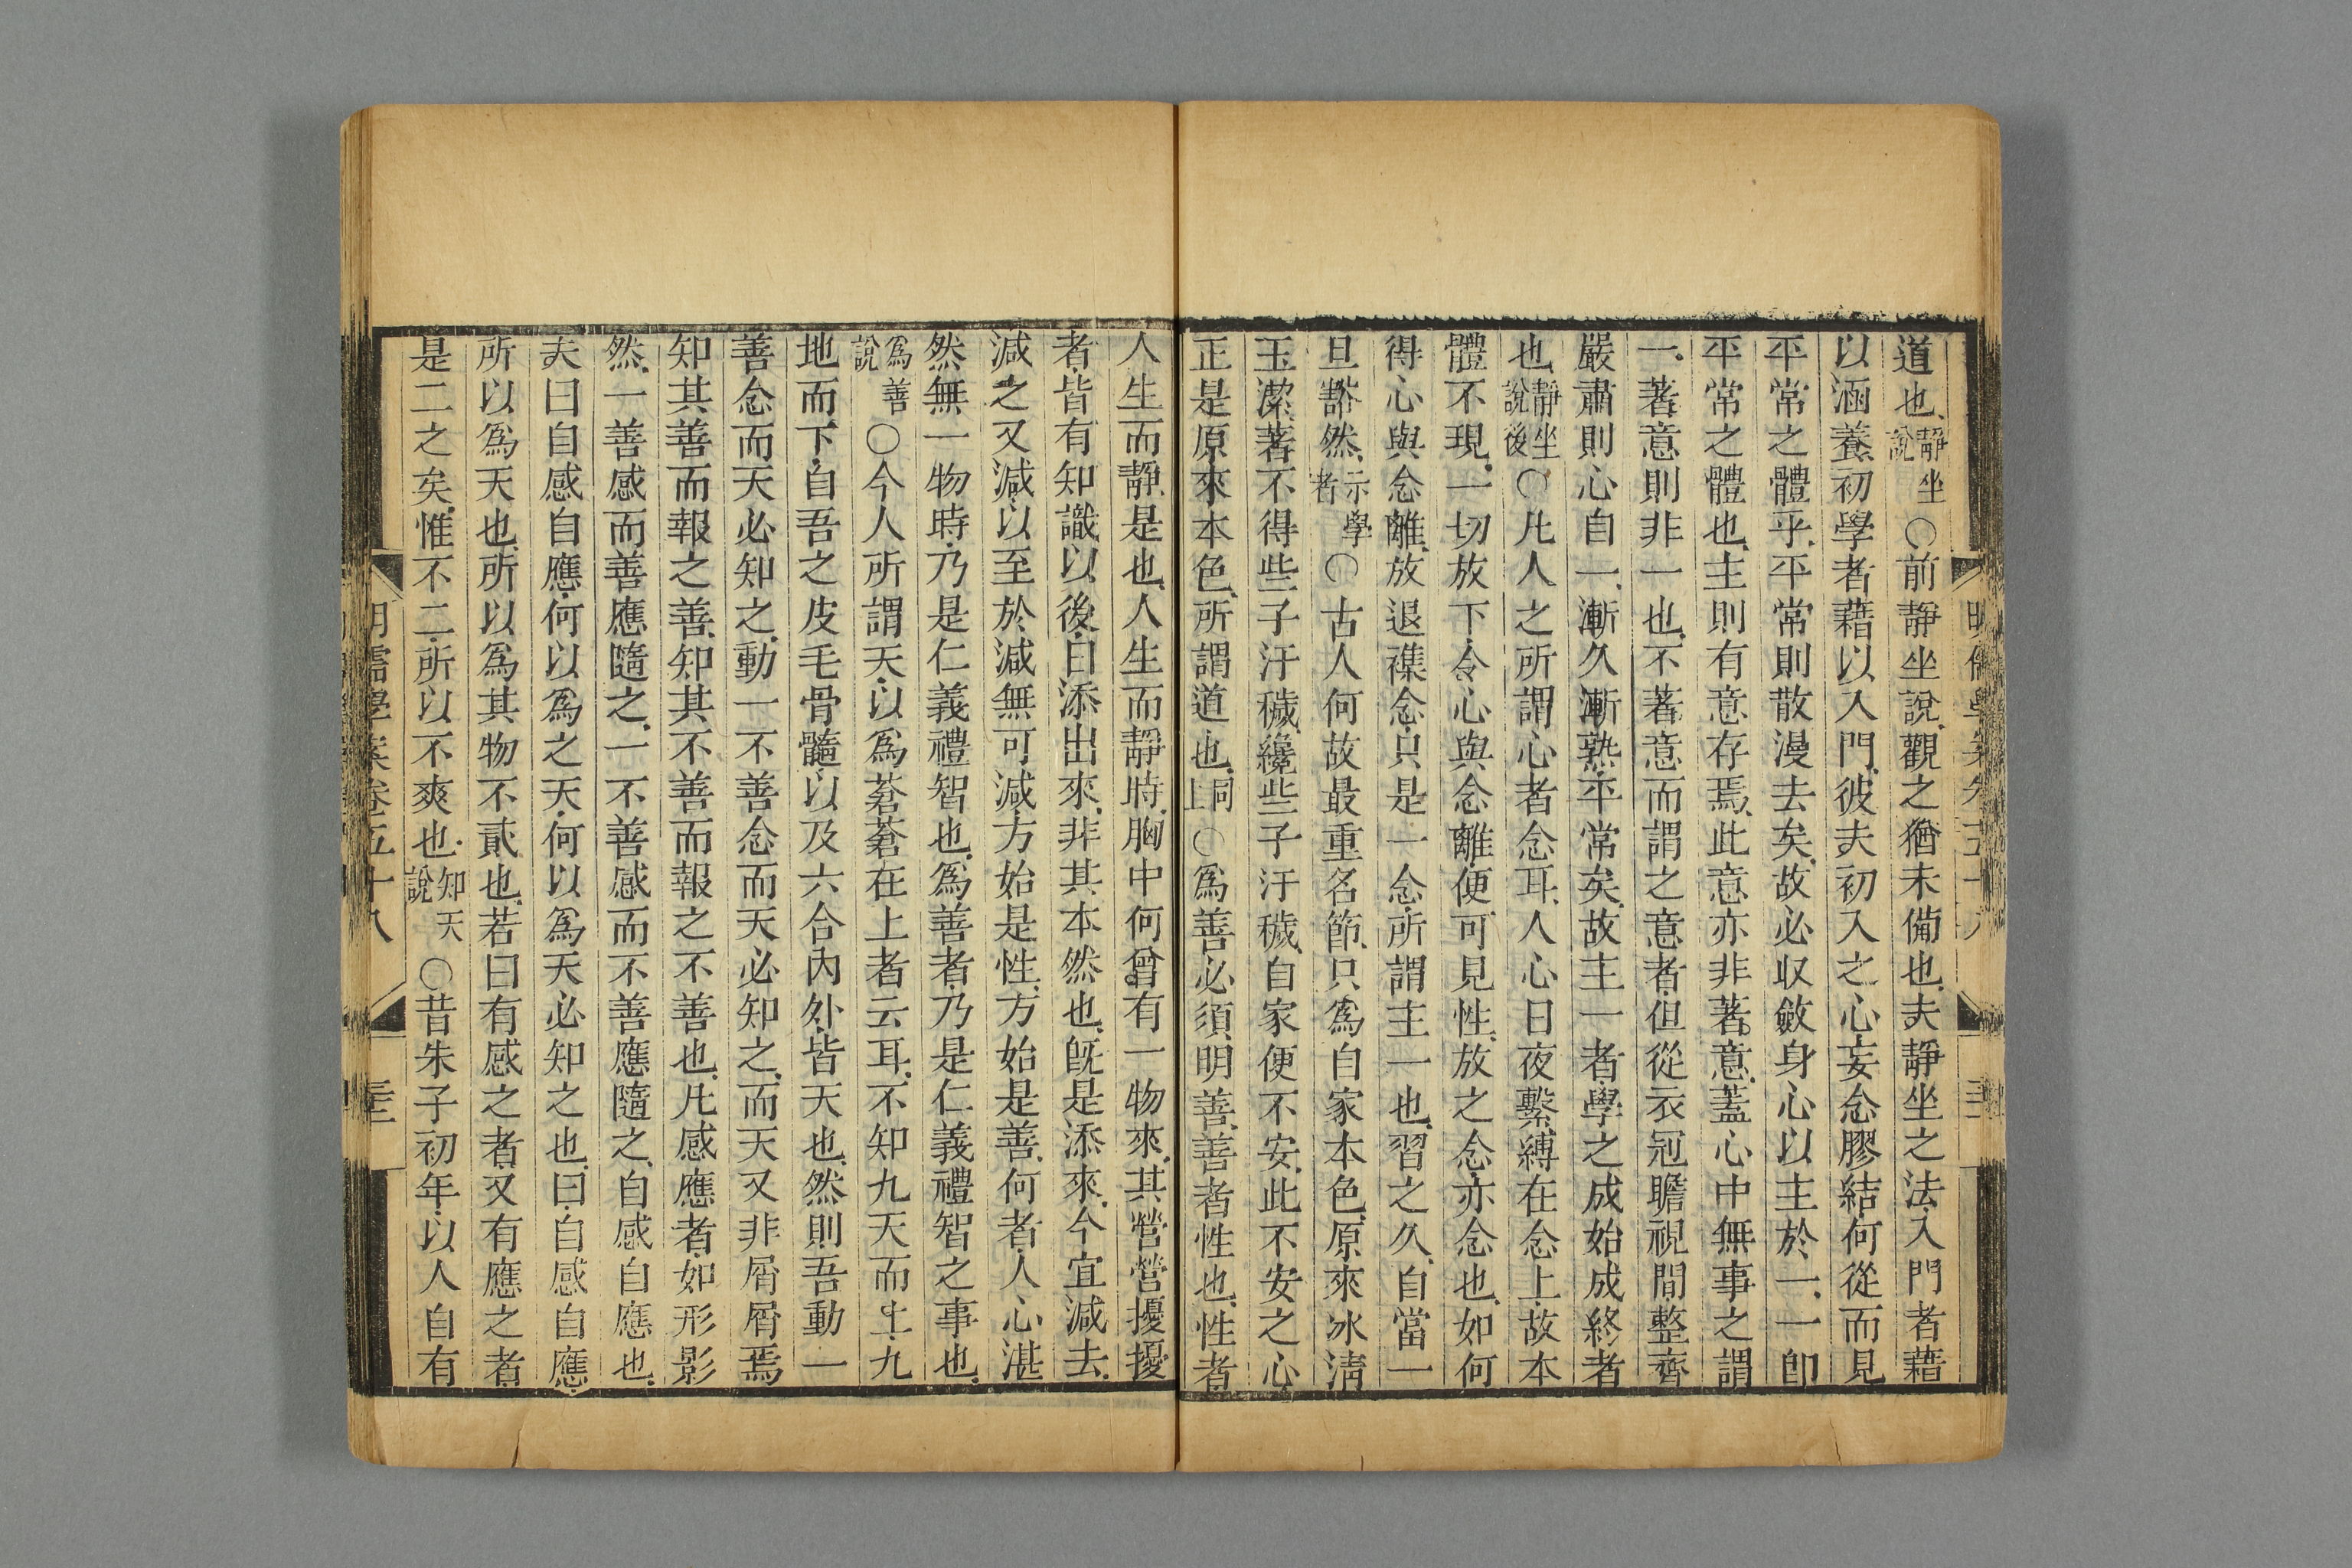 道也靜坐說○前靜坐說觀之猶未備也夫靜坐之法入門者藉
以涵養初學者藉以入門彼夫初入之心妄念膠結何從而見
平常之體乎平常則散漫去矣故必収斂身心以主於一一卽
平常之體也主則有意存焉此意亦非著意蓋心中無事之謂
一著意則非一也不著意而謂之意者但從衣冠瞻視間整齊
嚴肅則心自一漸久漸熟平常矣故主一者學之成始成終者
也靜坐說後○凡人之所謂心者念耳人心日夜繫縛在念上故本
體不現一切放下令心與念離便可見性放之念亦念也如何
得心與念離放退襍念只是一念所謂主一也習之久自當一
旦豁然示學者○古人何故最重名節只爲自家本色原來冰淸
玉潔著不得些子汙穢纔些子汙穢自家便不安此不安之心
正是原來本色所謂道也同上○爲善必須明善善者性也性者
人生而靜是也人生而靜時胸中何曾有一物來其營營擾擾
者皆有知識以後日添出來非其本然也旣是添來今宜減去
減之又減以至於減無可減方始是性方始是善何者人心湛
然無一物時乃是仁義禮智也爲善者乃是仁義禮智之事也
爲善說○今人所謂天以爲蒼蒼在上者云耳不知九天而上九
地而下自吾之皮毛骨髓以及六合內外皆天也然則吾動一
善念而天必知之動一不善念而天必知之而天又非屑屑焉
知其善而報之善知其不善而報之不善也凡感應者如形影
然一善感而善應隨之一不善感而不善應隨之自感自應也
夫曰自感自應何以爲之天何以爲天必知之也曰自感自應
所以爲天也所以爲其物不貳也若曰有感之者又有應之者
是二之矣惟不二所以不爽也知天說○昔朱子初年以人自有
明儒學案卷五十八